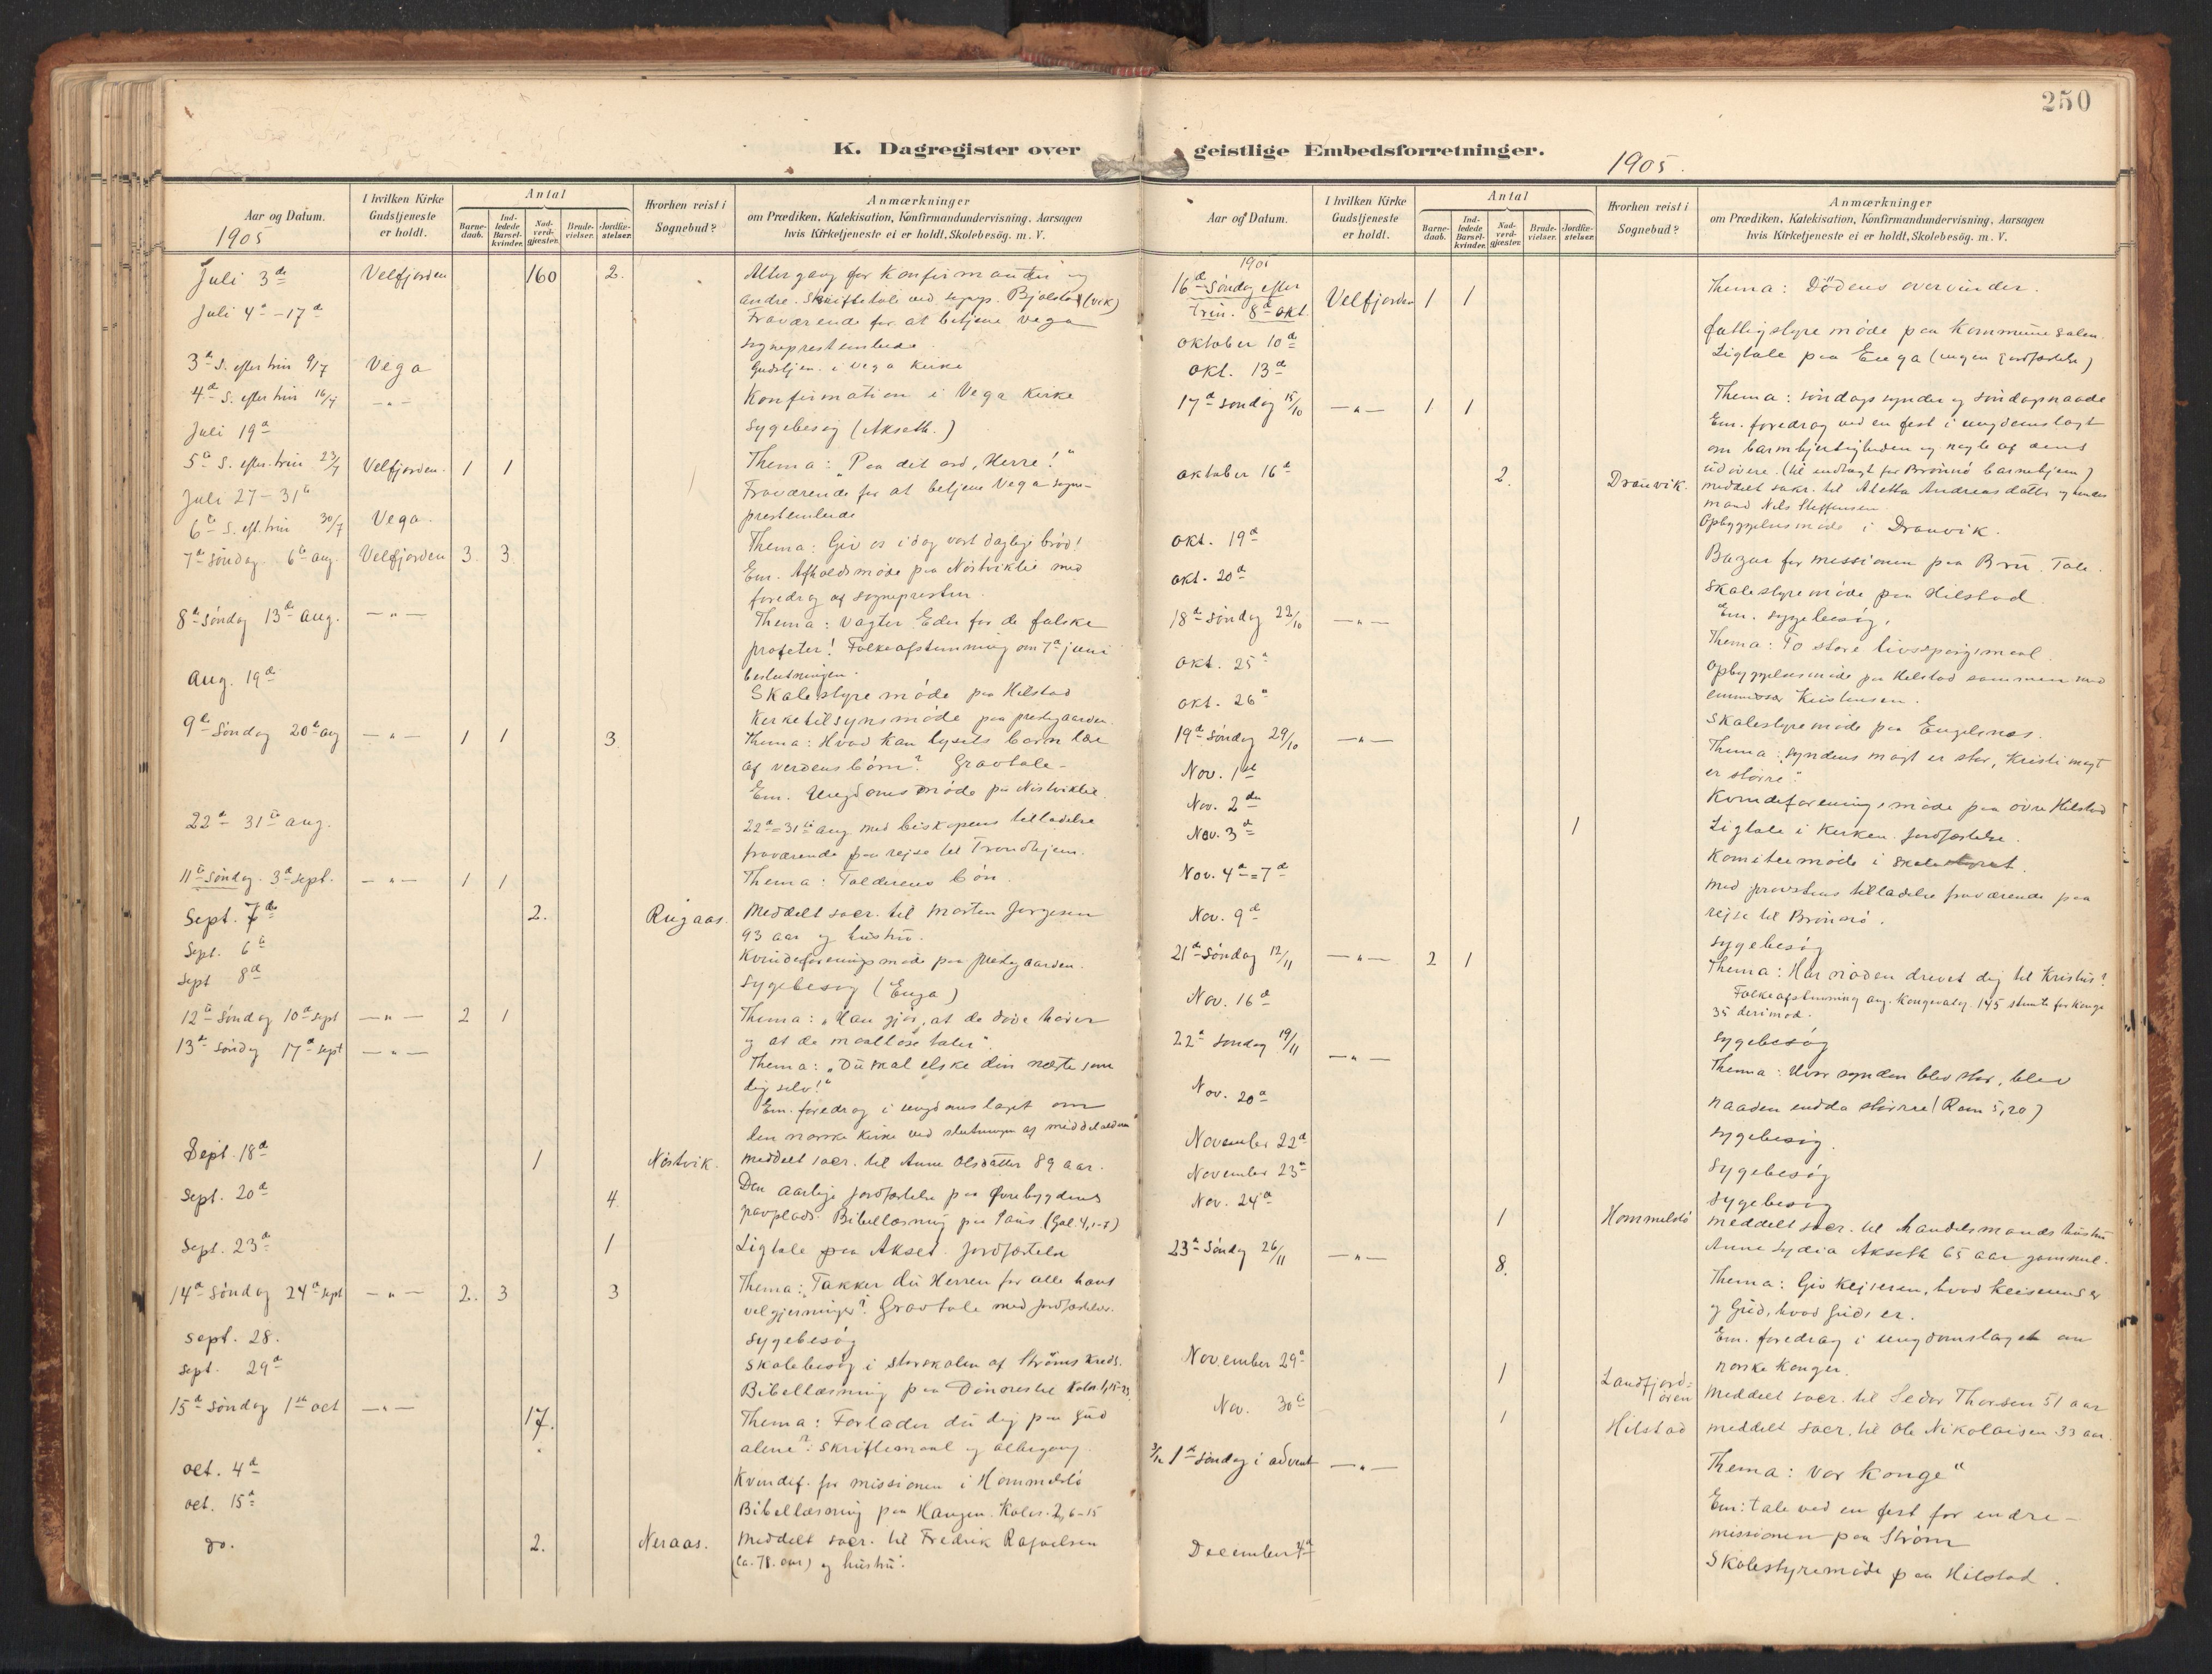 250
K. Dagregister over geistlige Embedsforretninger.
1905.
Aar og Datum.
1905
I hvilken Kirke Gudstjeneste er holdt.
Antal
Barne-daab.
Ind-ledede Barsel-kvinder.
Nad-verd-gjester.
Brude-vielser.
Jordfæ-stelser.
Hvorhen reist i Sognebud?
Anmærkninger
om Prædiken, Katekisation, Konfirmandundervisning, Aarsagen
hvis Kirketjeneste ei er holdt, Skolebesög. m. V.
Juli 3de Velfjorden 160 2. Altergang for Konfirmander og
andre. Skriftetale ved sognepr. Bjolstad (vik)
Juli 4de–17de Fraværende for at betjene Vega
sogneprestembede.
3de S. efter trin 9/7 Vega Gudstjen. i Vega Kirke
4de S. efter trin 16/7 –"– Konfirmation i Vega Kirke
Juli 19de Sygebesøg (Akseth.)
5te S. efter trin 23/7 Velfjorden. 1 1 Thema: "Paa dit ord, Herre!"
Juli 27–31te Fraværende for at betjene Vega sogne-
prestembede
6te S. eft. trin 30/7 Vega.
7de Søndag 6te aug. Velfjorden 3. 3. Thema: Giv os i dag vort daglige brød!
Em. Afholdsmøde paa Nøstviklie med
foredrag af sognepresten.
8de Søndag 13de aug. –"– Thema: Vogter Eder for de falske
profeter! Folkeafstemning om 7de juni
beslutningen.
Aug. 19de Skolestyremøde paa Hilstad
Kirketilsynsmøde paa prestgaarden.
9de Søndag 20de aug –"– 1 1 3. Thema: Hvad kan lysets børn lære
af verdens børn? Gravtale –
Em. Ungdomsmøde paa Nøstviklie.
22de–31te aug. 22de=31te aug med biskopens tilladelse
fraværende paa rejse til Trondhjem.
11te Søndag. 3de sept. –"– 1 1 Thema: Tolderens bøn.
Sept. 7de 2. Rugaas. Meddelt sacr. til Morten Jørgensen
93 aar og hustru.
Sept. 6te Kvindeforeningsmøde paa prestgaarden.
Sept 8de Sygebesøg (Enga)
12te Søndag 10de sept –"– 2 1 Thema: "Han gjør, at de døve hører
og at de maalløse taler".
13de Søndag 17de sept –"– Thema: "Du skal elske din næste som
dig selv!"
Em. foredrag i ungdomslaget om
den norske kirke ved slutningen af middelalderen
Sept. 18de 1 Nøstvik. Meddelt sacr. til Anne Olsdatter 89 aar.
Sept. 20de 4. Den aarlige jordfæstelse paa Øvrebygdens
gravplads. Bibellæsning paa Saus (Gal. 4,1-7)
Sept. 23de 1 Ligtale paa Akset. Jordfæstelse
14de Søndag 24de sept –"– 2. 3 3 Thema: "Takker du Herren for alle hans
velgjerninger"? Gravtale med jordfæstelse.
Sept. 28. Sygebesøg
Sept. 29de Skolebesøg i storskolen af Strøms Kreds.
Bibellæsning paa Kolos 1,15-23
15de Søndag 1ste oct –"– 17. Thema: Forlader du dig paa Gud
alene? Skriftemaal og altergang.
Oct. 4de Kvindef. for missionen i Hommelstø
Oct. 15de Bibellæsning paa Haugen. Kolos. 2,6–15
do. 2. Neraas. Meddelt sacr. til Fredrik Rafaelsen
(ca. 78. aar) og hustru.
Aar og Datum.
I hvilken Kirke Gudstjeneste er holdt.
Antal
Barne-daab.
Ind-ledede Barsel-kvinder.
Nad-verd-gjester.
Brude-vielser.
Jordfæ-stelser.
Hvorhen reist i Sognebud?
Anmærkninger
om Prædiken, Katekisation, Konfirmandundervisning, Aarsagen
hvis Kirketjeneste ei er holdt, Skolebesög. m. V.
1905
16de Søndag efter
trin. 8de okt Velfjorden 1 1 Thema: Dödens overvinder.
Oktober 10de Fattigstyremøde paa Kommunesalen.
Okt. 13de Ligtale paa Enga (ingen jordfæstelse)
17de Søndag 15/10 –"– 1 1 Thema: Søndagssynder og søndagsnaade
Em. foredrag ved en fest i ungdomslaget
om barmhjertigheden og nogle af dens
udøvere. (til indtægt for Brønnø barnehjem)
Oktober 16de 2. Drauvik. meddelt sakr. til Aletta Andreasdatter og hendes
mand Nils Steffensen
Opbyggelsesmøde i Drauvik.
Okt. 19de Bazar for missionen paa Bru. Tale.
Okt. 20de Skolestyremøde paa Hilstad
Em. sygebesøg.
18de Søndag 22/10 –"– Thema: To store livsspørgsmaal.
Okt. 25de Opbyggelsesmøde paa Hilstad sammen med
emissær Kristensen.
Okt. 26de Skolestyremøde paa Engelsnes.
19de Søndag 29/10 –"– Thema: "Syndens magt er stor, Kristi magt
er større".
Nov. 1ste Kvindeforeningsmøde paa øvre Hilstad
Nov. 2den Ligtale i Kirken. Jordfæstelse. 1
Nov. 3de Komitemøde i skolestyret.
Nov. 4de=7de Med provstens tilladelse fraværende paa
rejse til Brønnø.
Nov. 9de Sygebesøg
21de Søndag 12/11 –"– 2 1 Thema: Har nøden drevet dig til Kristus?
Folkeafstemning ang. Kongevalg. 145 stemte for Konge
35 derimod.
Nov. 16de Sygebesøg
22de Søndag 19/11 –"– Thema: Hvor synden blev stor, blev
naaden endda større (Rom 5,20)
Nov. 20de Sygebesøg.
November 22de Sygebesøg
November 23de Sygebesøg
Nov. 24de 1 Hommelstø meddelt sacr. til handelsmands hustru
Anne Lydia Akseth 65 aar gammel.
23de Søndag 26/11 –"– 8. Thema: Giv Kejseren, hvad Keiserens er
og Gud, hvad Guds er.
Em. foredrag i ungdomslaget om
norske konger.
November 29de 1 Landfjord=
øren Meddelt sacr. til Sedor Thorsen 51 aar
Nov. 30te 1 Hilstad meddelt sacr. til Ole Nikolaisen 33 aar.
3/12 1ste Søndag i advent –"– Thema: "Vor Konge"
Em: tale ved en fest for indre-
missionen paa Strøm
December 4de Skolestyremøde paa Hilstad.